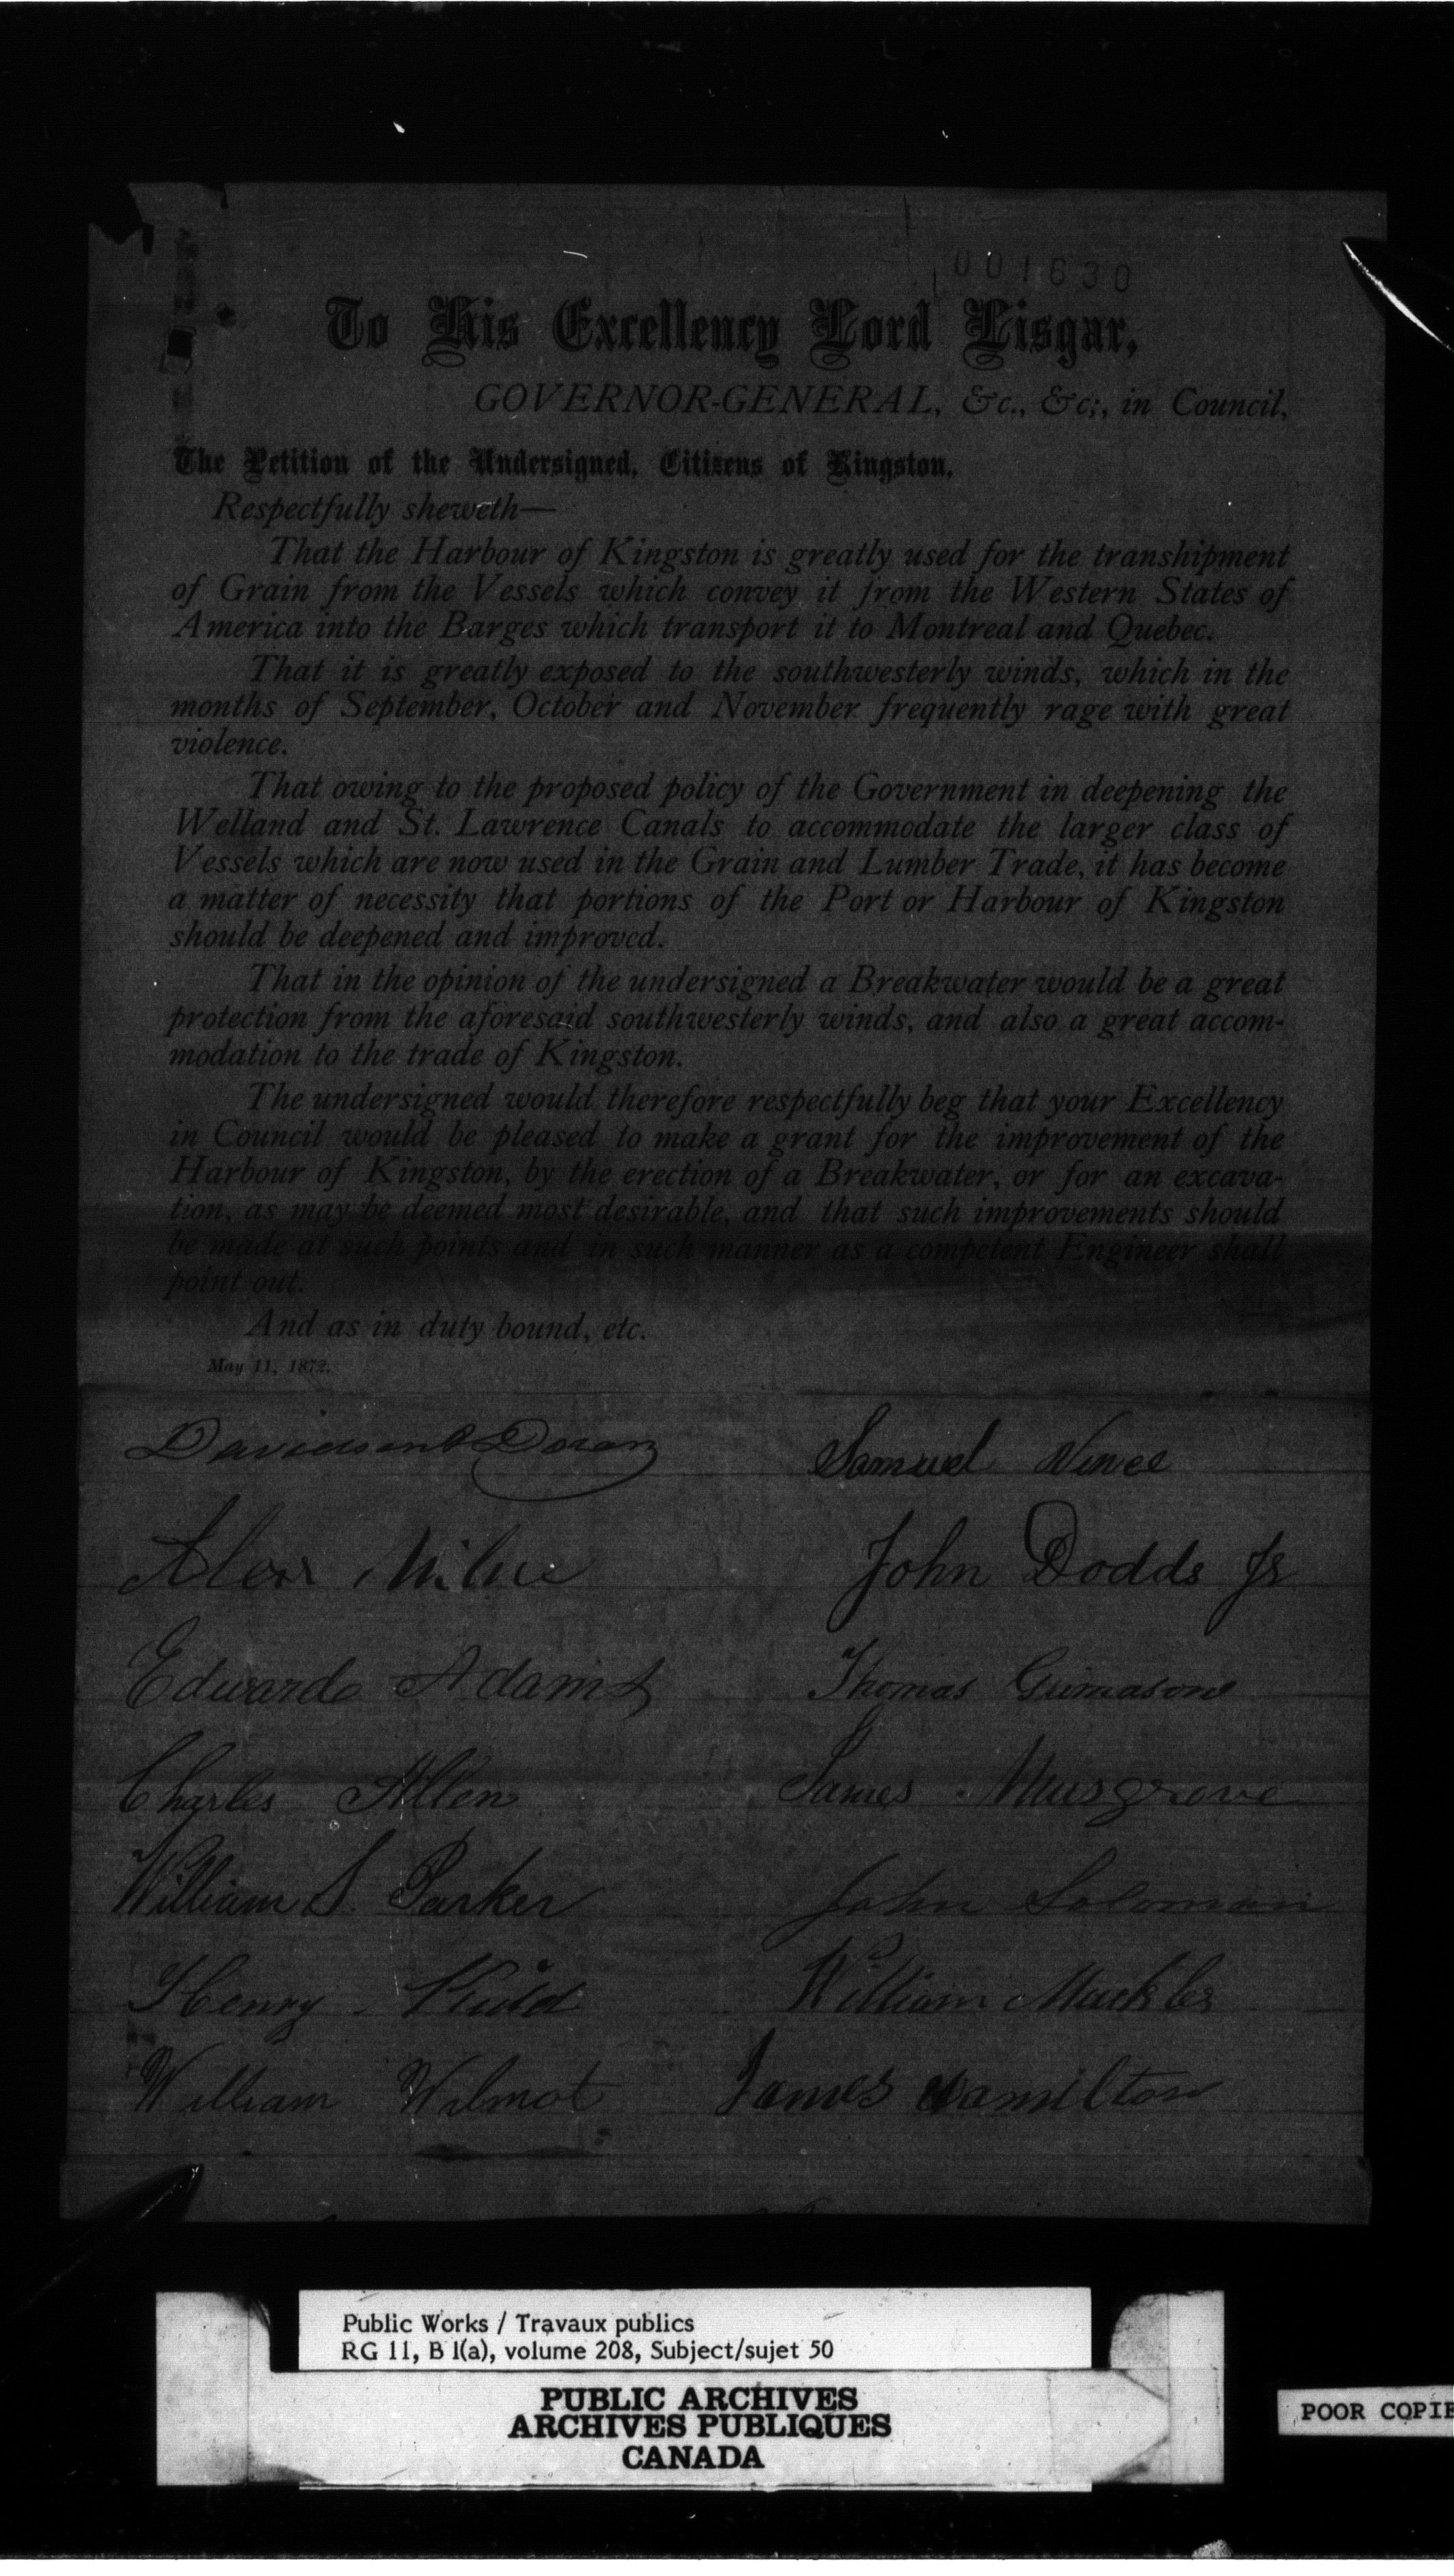 001630
To His Excellency Lord Lisgar,
GOVERNOR-GENERAL, &c., &c;, in Council,
The Petition of the Undersigned, Citizens of Kingston,
Respectfully sheweth—
That the Harbour of Kingston is greatly used for the transhipment
of Grain from the Vessels which convey it from the Western States of
America into the Barges which transport it to Montreal and Quebec.
That it is greatly exposed to the southwesterly winds, which in the
months of September, October and November frequently rage with great
violence.
That owing to the proposed policy of the Government in deepening the
Welland and St. Lawrence Canals to accommodate the larger class of
Vessels which are now used in the Grain and Lumber Trade, it has become
a matter of necessity that portions of the Port or Harbour of Kingston
should be deepened and improved.
That in the opinion of the undersigned a Breakwater would be a great
protection from the aforesaid southwesterly winds, and also a great accom-
modation to the trade of Kingston.
The undersigned would therefore respectfully beg that your Excellency
in Council would be pleased to make a grant for the improvement of the
Harbour of Kingston, by the erection of a Breakwater, or for an excava-
tion, as may be deemed most desirable, and that such improvements should
be made at such points and in such manner as a competent Engineer shall
point out.
And as in duty bound, etc.
May 11, 1872.
Davidson & Doran
Samuel
Alexr Milne
John Dodds Jr
Edward Adams
Thomas Grimason
Charles Allen
James Musgrove
William S. Parker
John Soloman
Henry
William
William Wilmot
James Hamilton
Public Works / Travaux publics
RG 11, B 1(a), volume 208, Subject/sujet 50
PUBLIC ARCHIVES
ARCHIVES PUBLIQUES
CANADA
POOR COPIE